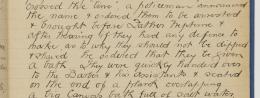 crossed the line", a policeman announced
the name & ordered them to be arrested
& brought before Father Neptune &
after hearing if they had any defence to
make as to why they should not be dipped
& shaved he ordered that they be given
a bath. They were quickly handed over
to the Barber & his Assistants & seated
on the end of a plank overlapping
a big Canvas bath full of salt water